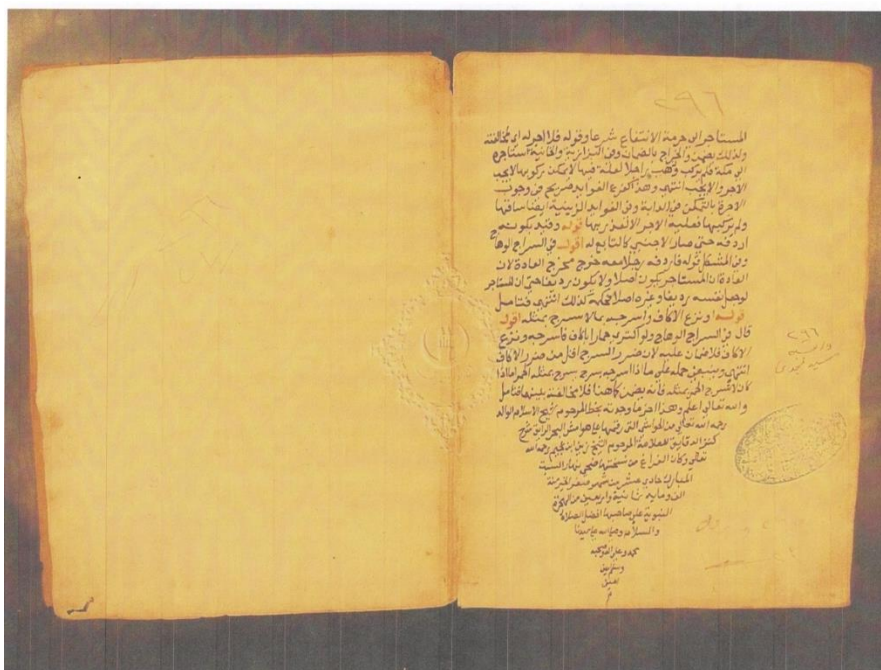 ٢٩٦
المستاجر الى حرمة الانتفاع شرعا وقوله فلا اجر له اى لمخالفته
ولذلك يضمن والخراج بالضمان وفى البزازية والخانية استاجره
الى مكة فلم يركب وذهب راجلا لعلة فيها لا يمكن ركوبها لا يجب
الاجر والا يجب انتهى وهذا الفرع صريح فى وجوب
الاجرة بالتمكن فى الدابة وفى الفوايد الزينية ايضا ساقها
ولم يركبها فعليه الاجر الا لعذر بها قوله وقيد بكونه
اردفه حتى صار الاجنبى كالتابع له اقول فى السراج الوهاج
وفى المشكل قوله فاردفه رجلا معه خرج مخرج العادة لان
العادة ان المستاجر يكون اصلا ولا يكون رديفا حتى ان المستاجر
لو جعل نفسه رديفا وغيره اصلا حكمه كذلك انتهى فتامل
قوله او نزع الاكاف واسرجه بما لا يسرج بمثله اقول
قال فى السراج الوهاج ولو اكترى حمارا باكاف فاسرجه ونزع
الاكاف فلا ضمان عليه لان ضرر السرج اقل من ضرر الاكاف
انتهى وينبغى حمله على ما اذا اسرجه بسرج يسرج بمثله الحمر اما اذا
كان لا تسرج الحمر بمثله فانه يضمن كما هنا فلا مخالفة بينهما فتامل
والله تعالى اعلم وهذا اخر ما وجدته بخط المرحوم شيخ الاسلام الوالد
رحمه الله تعالى من الحواشى التى رقمها على هوامش البحر الرايق شرح
كنز الدقايق للعلامة المرحوم الشيخ زين ابن نجيم رحمه الله
تعالى وكان الفراغ من نسختها ضحى نهار السبت
المبارك حادى عشر من شهر صفر الخير سنة
الف ومايه ثمانية واربعين من الهجرة
النبوية على صاحبها افضل الصلاة
والسلام وصلى الله على سيدنا
محمد وعلى اله وصحبه
وسلم
٢٩٦